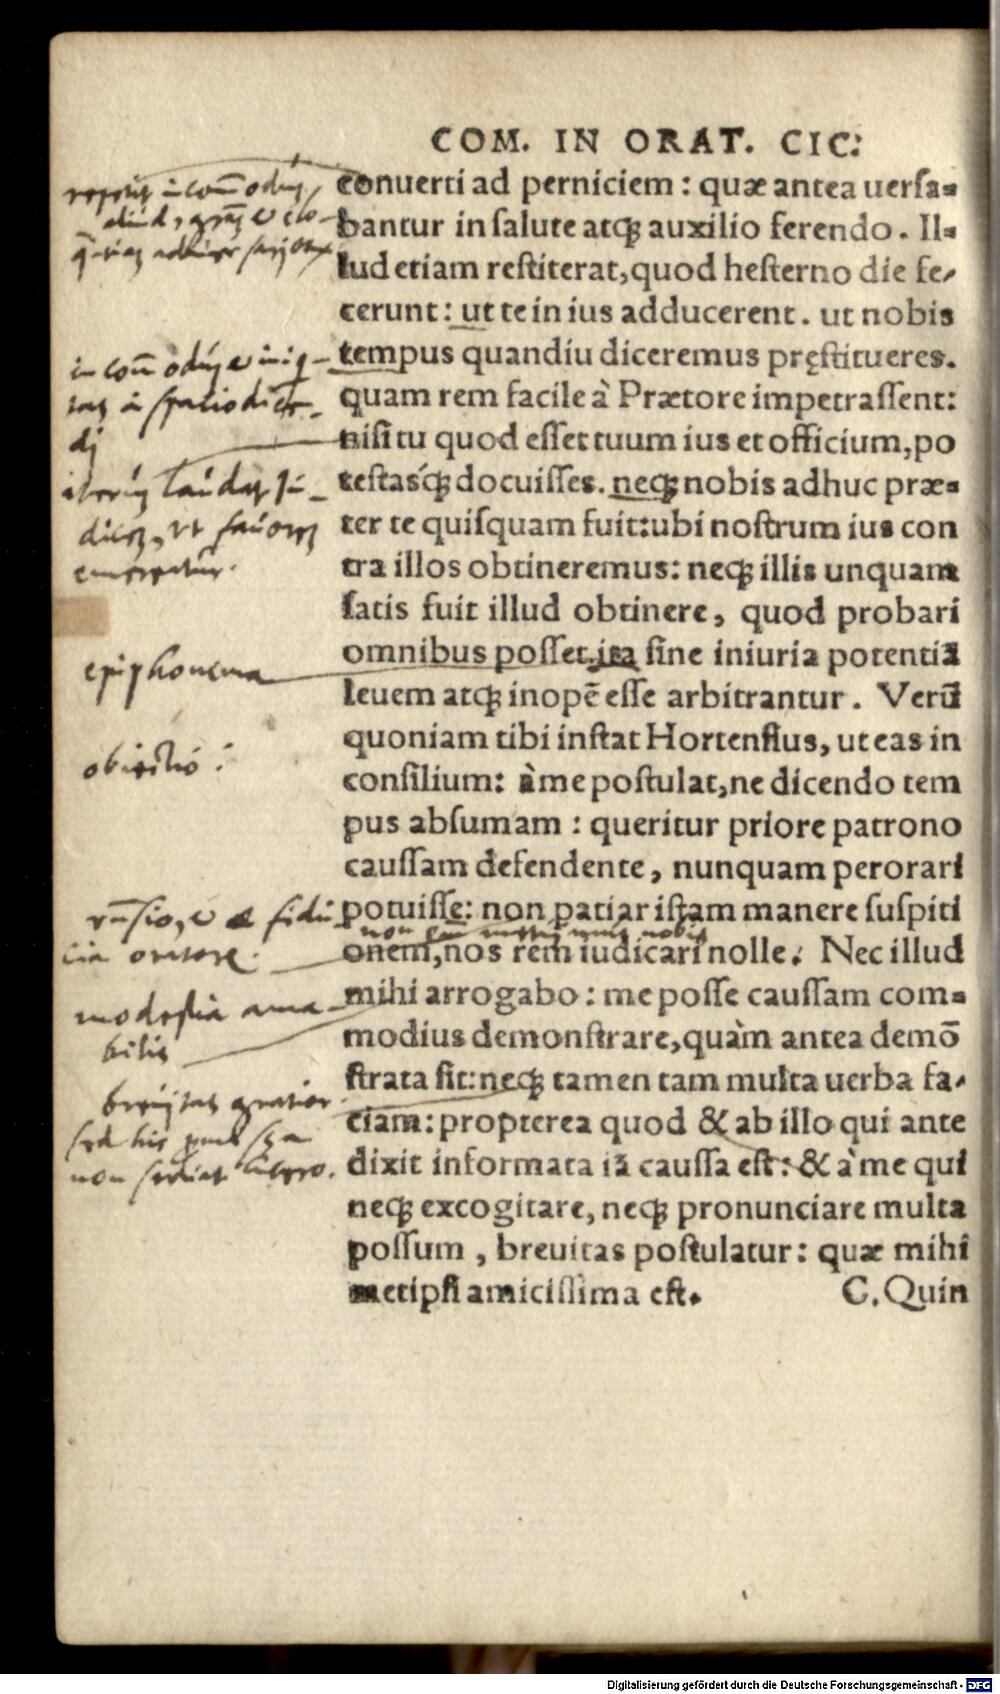 COM. IN ORAT. CIC:
conuerti ad perniciem : quæ antea uersa-
bantur in salute atq; auxilio ferendo . Il-
lud etiam restiterat, quod hesterno die fe-
cerunt : ut te in ius adducerent . ut nobis
tempus quandiu diceremus pręstitueres.
quam rem facile à Prætore impetrassent:
nisi tu quod esset tuum ius et officium, po
testasq́; docuisses . neq; nobis adhuc præ-
ter te quisquam fuit: ubi nostrum ius con
tra illos obtineremus : neq; illis unquam
satis fuit illud obtinere , quod probari
omnibus posset, ita sine iniuria potentiã
leuem atq; inopẽ esse arbitrantur . Verũ
quoniam tibi instat Hortensius, ut eas in
consilium : à me postulat, ne dicendo tem
pus absumam : queritur priore patrono
caussam defendente , nunquam perorari
potuisse: non patiar istam manere suspiti
onem, nos rem iudicari nolle. Nec illud
mihi arrogabo : me posse caussam com-
modius demonstrare, quàm antea demõ
strata sit: neq; tamen tam multa uerba fa-
ciam: propterea quod & ab illo qui ante
dixit informata iã caussa est: & à me qui
neq; excogitare, neq; pronunciare multa
possum , breuitas postulatur: quæ mihi
metipsi amicissima est.
C. Quin
epiphonema
obiectio :
modestia ama-
bilis
breuitas gratior
Digitalisierung gefördert durch die Deutsche Forschungsgemeinschaft - DFG